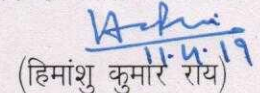 11.4.19
(हिमांशु कुमार राय)